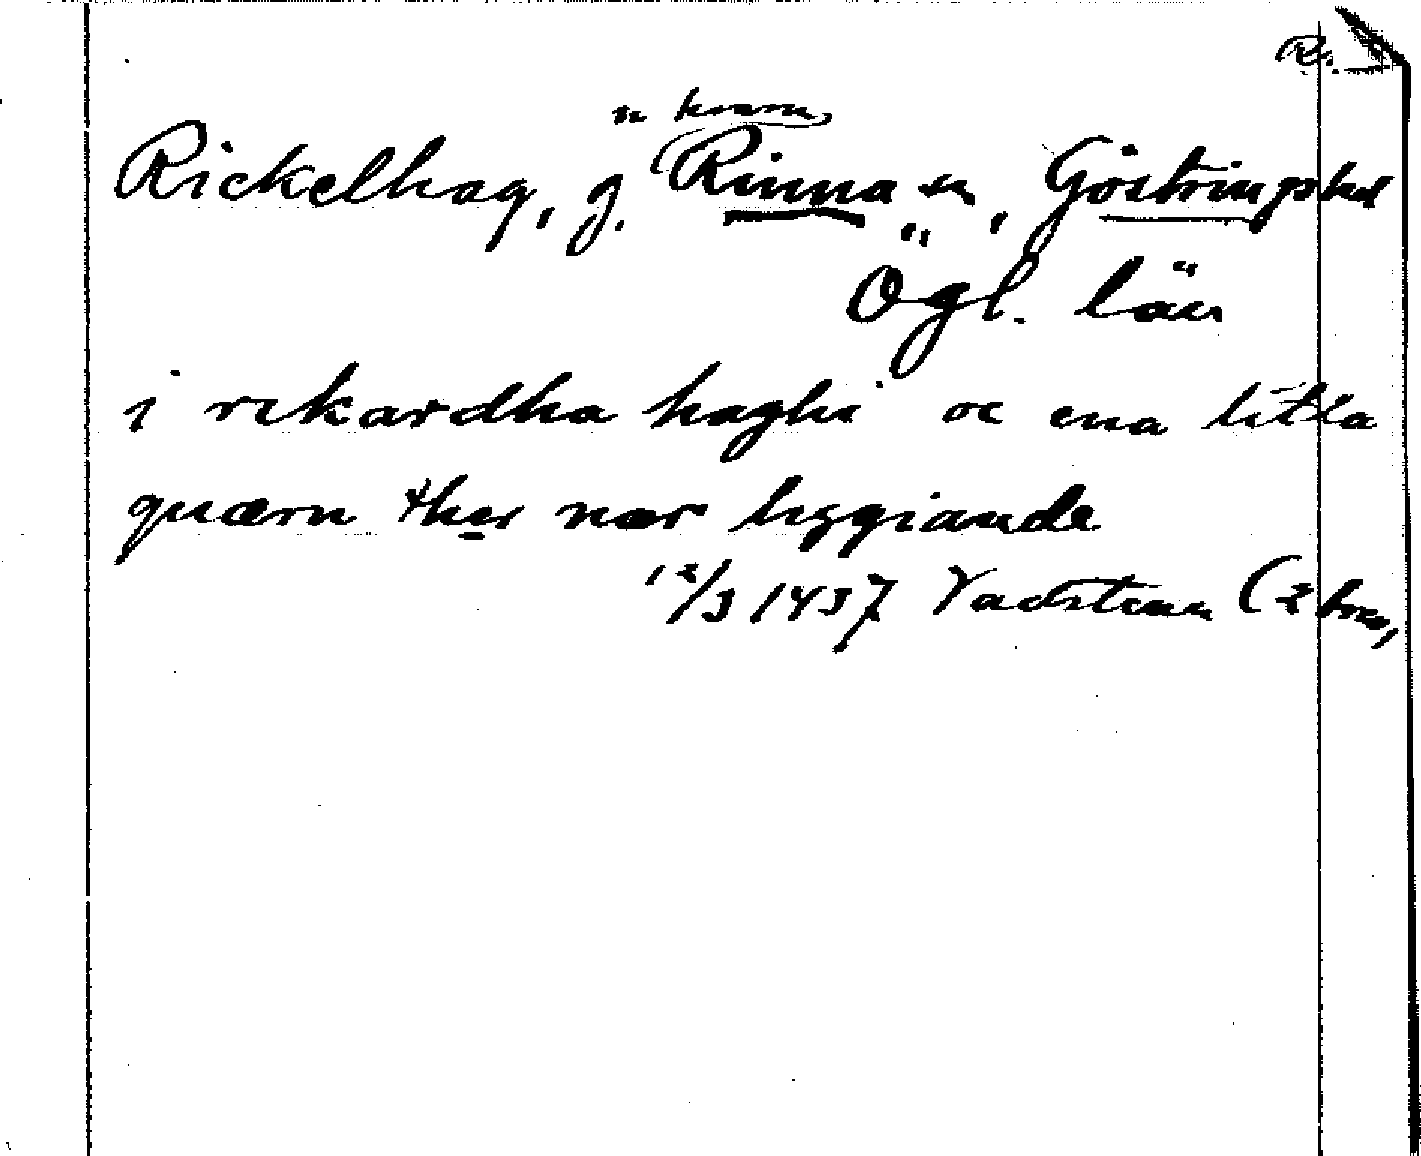 R.
n kvarn
Rickelhag, g. Rinna sn, Göstrings hd
Ögl. län
i rekardha haghi oc ena litla
quærn ther nær liggiande
12/3 1437 Vadstena (2 brev,